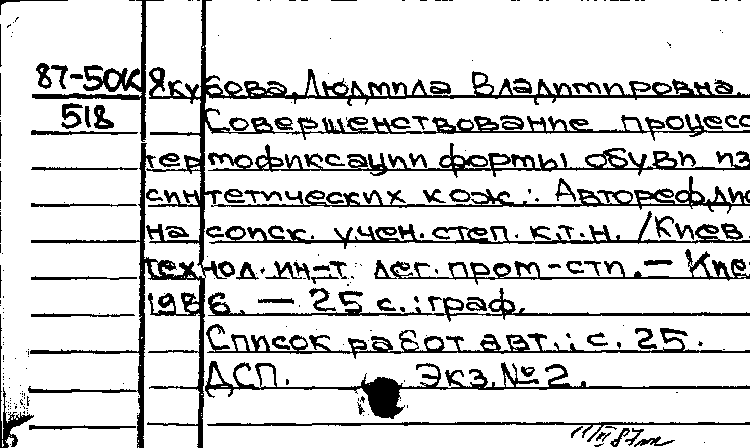 87-50К Якубова, Людмила Владимировна.
518 Совершенствование процесс
термофиксации формы обуви из
синтетических кож.: Автореф. дис
на соиск. учен. степ. к.т.н. /Киев.
технол. ин-т лег. пром-сти. — Кие
1986. — 25 с.: граф.
Список работ авт.: с. 25.
ДСП. Экз. № 2.